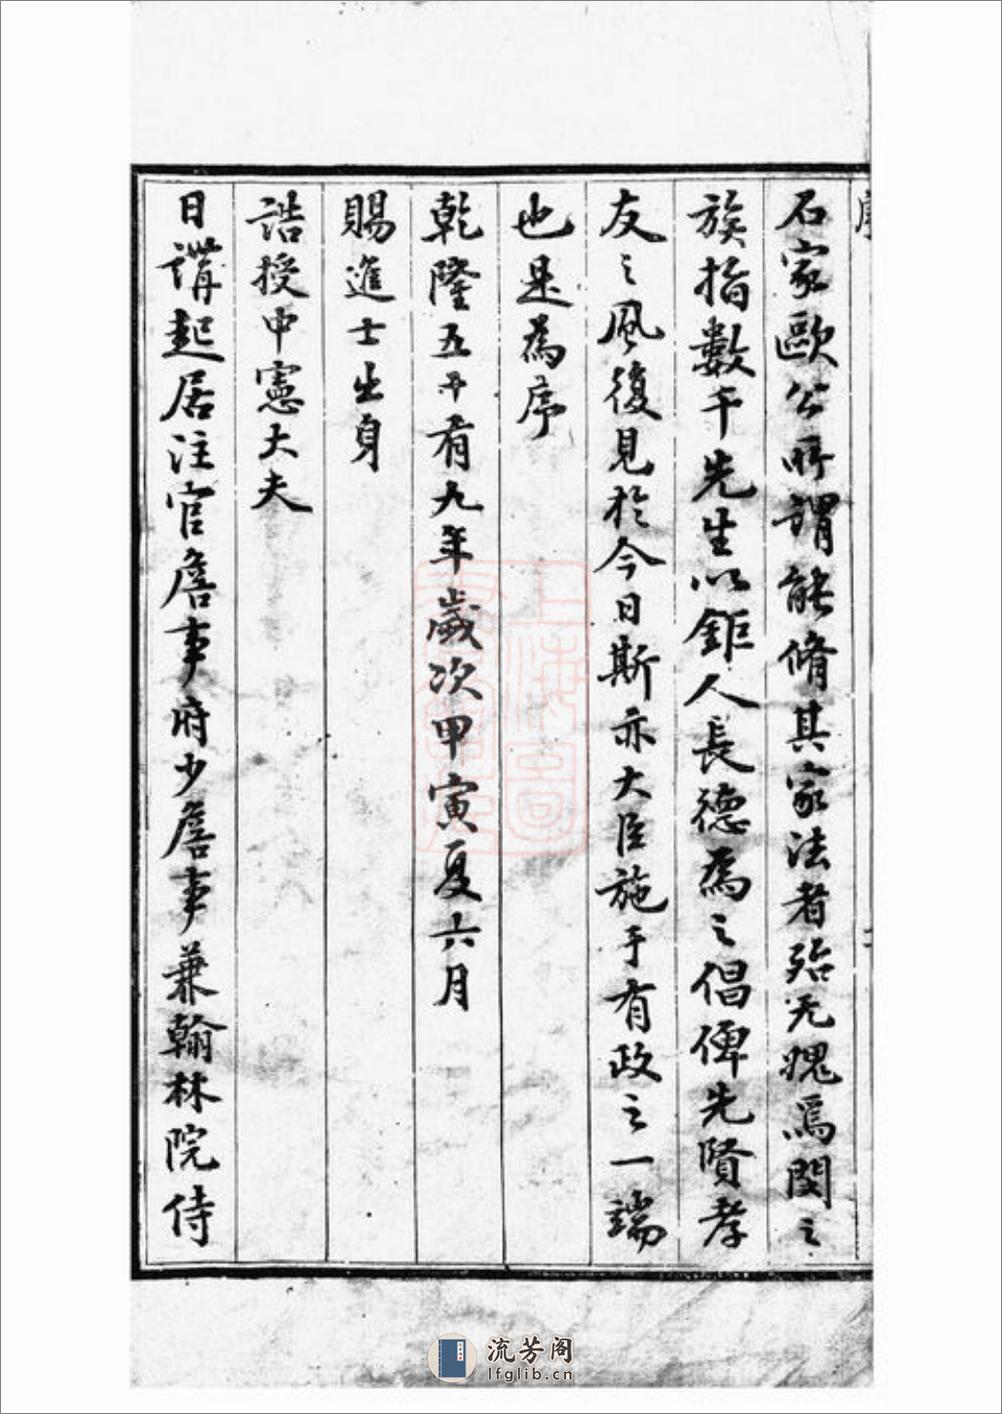 石家歐公所謂能脩其家法者殆无愧焉閔之
族指數千先生以鉅人長德為之倡俾先賢孝
友之風復見於今日斯亦大臣施于有政之一端
也是為序
乾隆五十有九年歲次甲寅夏六月
賜進士出身
誥授中憲大夫
日講起居注官詹事府少詹事兼翰林院侍
流芳阁
lfglib.cn